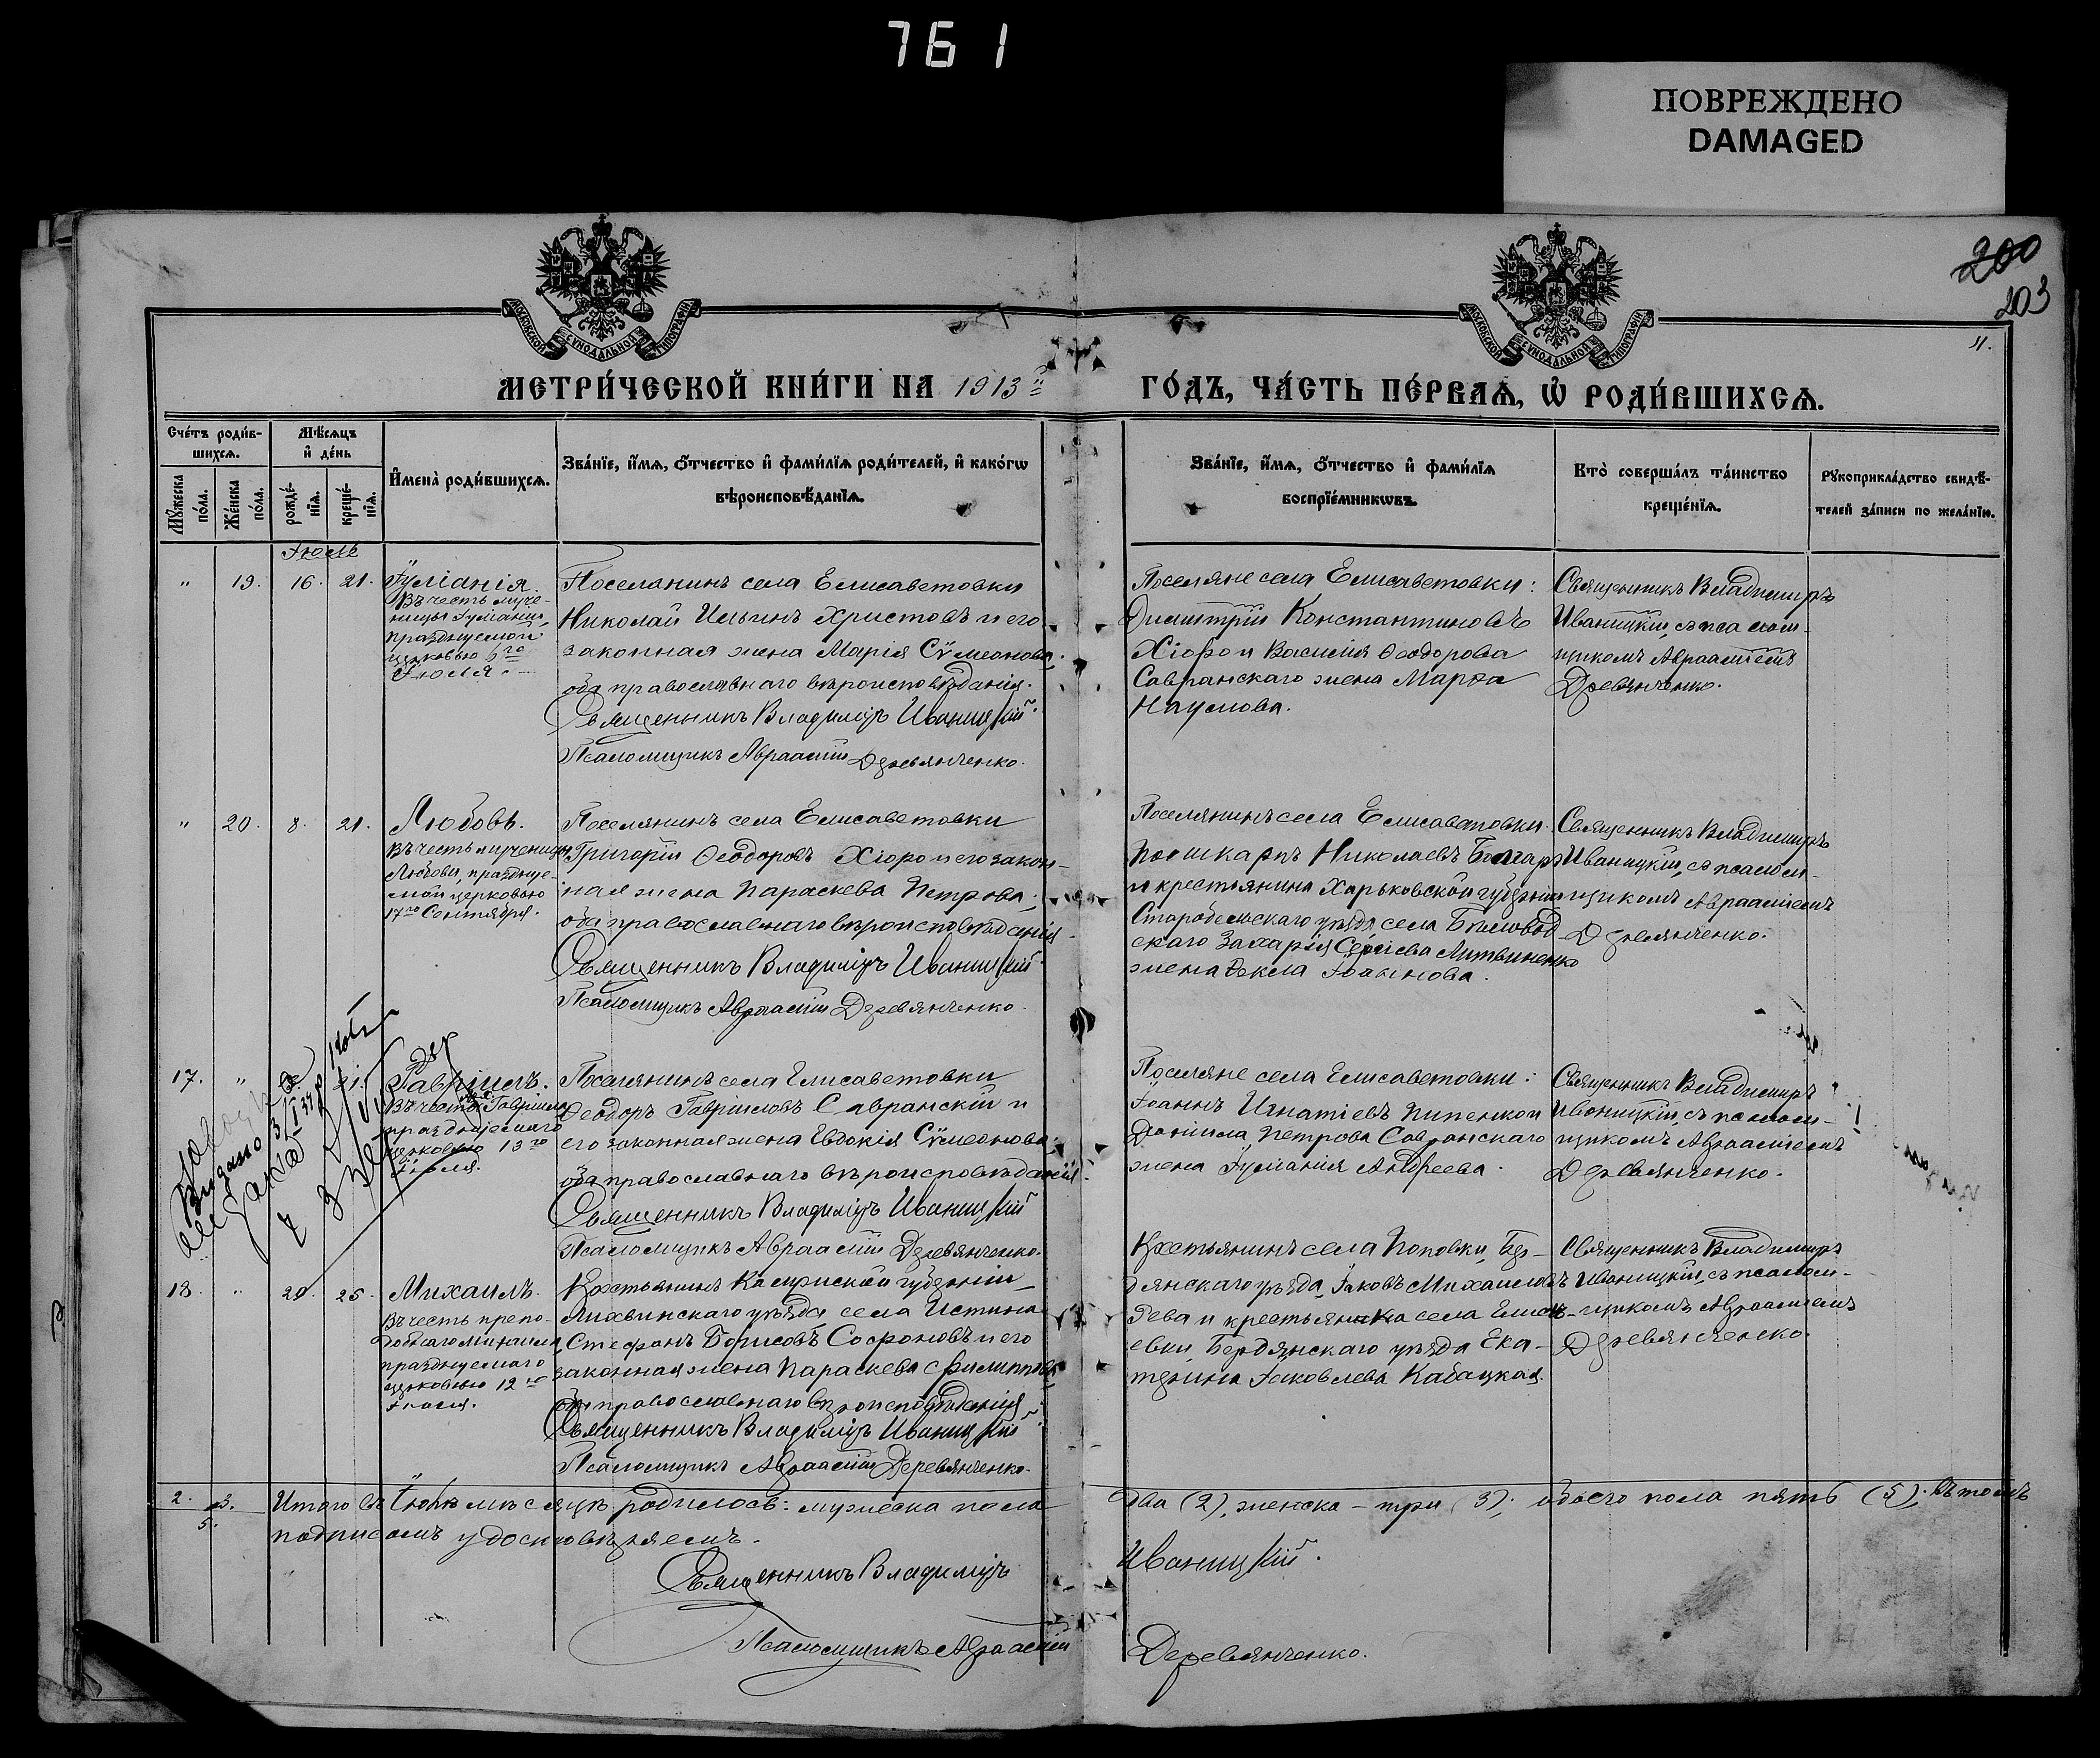 761
ПОВРЕЖДЕНО
DAMAGED
200
203
МОСКОВСКОЙ СѴНОДАЛЬНОЙ ТИПОГРАФІИ
МОСКОВСКОЙ СѴНОДАЛЬНОЙ ТИПОГРАФІИ
11.
МЕТРИ́ЧЕСКОЙ КНИ́ГИ НА 1913й
ГО́ДЪ, ЧА́СТЬ ПЕ́РВАѦ, Ѡ҆ РОДИ́ВШИХСѦ.
Сче́тъ роди́в-
шихсѧ.
Мѣ́сѧцъ
и҆ де́нь
Мꙋ́жеска
по́ла.
Же́нска
по́ла.
рожде́-
нїѧ.
креще́-
нїѧ.
И҆мена̀ роди́вшихсѧ.
Зва́нїе, и҆́мѧ, ѻ҆́тчество и҆ фами́лїѧ роди́телей, и҆ како́гѡ
вѣроисповѣ́данїѧ.
Зва́нїе, и҆́мѧ, ѻ҆́тчество и҆ фами́лїѧ
воспрїе́мникѡвъ.
Кто̀ соверша́лъ та́инство
креще́нїѧ.
Рꙋкоприкла́дство свидѣ́-
телей за́писи по жела́нїю.
Іюль
" 19. 16. 21. Іуліанія.
Въ честь муче-
ницы Іуліаніи,
празднуемой
церковью 6го
Іюля.
Поселянинъ села Елисаветовки
Николай Ильинъ Христовъ и его
законная жена Марія Сѵмеонова,
оба православнаго вѣроисповѣданія.
Священникъ Владиміръ Иваницкій.
Псаломщикъ Авраамій Деревянченко.
Поселяне села Елисаветовки:
Димитрій Константиновъ
Хіоро и Василія Ѳеодорова
Савранскаго жена Марѳа
Наумова.
Священникъ Владиміръ
Иваницкій, съ псалом-
щикомъ Авраамiемъ
Деревянченко.
" 20. 8. 21. Любовь.
Въ честь мученицы
Любови, праздnуе-
мой церковью
17го Сентября.
Поселянинъ села Елисаветовки
Григорій Ѳеодоровъ Хіоро и его закон-
ная жена Параскева Петрова,
оба православнаго вѣроисповѣданія.
Священникъ Владиміръ Иваницкій.
Псаломщикъ Авраамій Деревянченко.
Поселянинъ села Елисаветовки
Николаевъ Болгаръ
и крестьянина Харьковской губерніи
Старобѣльскаго уѣзда, села Бѣловод-
скаго Захарія Сергіева Литвиненко
жена Ѳекла Іоаннова.
Священникъ Владиміръ
Иваницкій, съ псалом-
щикомъ Авраамiемъ
Деревянченко.
17. " 21. Гавріилъ.
Въ честь Гавріила,
празднуемаго
церковью 13го
Іюля.
Выдано
Поселянинъ села Елисаветовки
Ѳеодоръ Гавріиловъ Савранскій и
его законная жена Евдокія Сѵмеонова,
оба православнаго вѣроисповѣданія.
Священникъ Владиміръ Иваницкій
Псаломщикъ Авраамій Деревянченко.
Поселяне села Елисаветовки:
Іоаннъ Игнатіевъ Пипенко и
Даніила Петрова Савранскаго
жена Іуліанія Андреева.
Священникъ Владиміръ
Иваницкій, съ псалом-
щикомъ Авраамiемъ
Деревянченко.
18. " 20. 25. Михаилъ.
Въ честь препо-
добнаго Михаила,
празднуемаго
церковью 12го
Іюля.
Крестьянинъ Калужской губерніи
Лихвинскаго уѣзда села Истина
Стефанъ Борисовъ Софроновъ и его
законная жена Параскева Филиппова,
оба православнаго вѣроисповѣданія.
Священникъ Владиміръ Иваницкій
Псаломщикъ Авраамій Деревянченко.
Крестьянинъ села Поповки, Бер-
дянскаго уѣзда, Іаковъ Михаиловъ
и крестьянка села
евки, Бердянскаго уѣзда Ека-
терина Іаковлева Кабацкая.
Священникъ Владиміръ
Иваницкій, съ псалом-
щикомъ Авраамiемъ
Деревянченко.
2. 3.
5.
Итого въ Іюлѣ мѣсяцѣ родилось: мужеска пола
два (2), женска – три (3); обоего пола пять (5); въ томъ
подписомъ удостовѣряемъ.
Священникъ Владиміръ
Иваницкій.
Псаломщикъ Авраамій
Деревянченко.